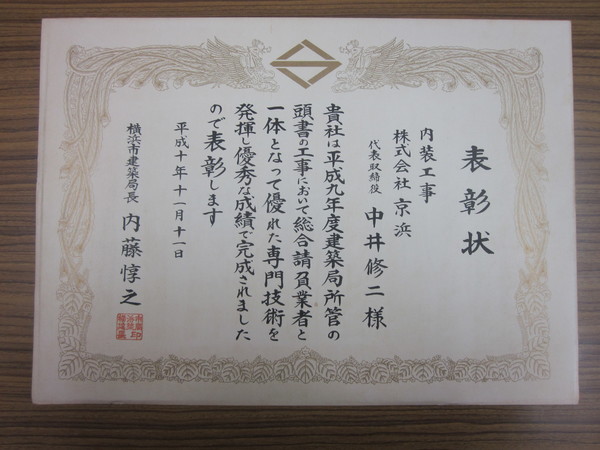 表彰状
内装工事
株式会社京浜
代表取締役 中井修二様
貴社は平成九年度建築局所管の
頭書の工事において総合請負業者と
一体となって優れた専門技術を
発揮し優秀な成績で完成されました
ので表彰します
平成十年十一月十一日
横浜市建築局長 内藤惇之